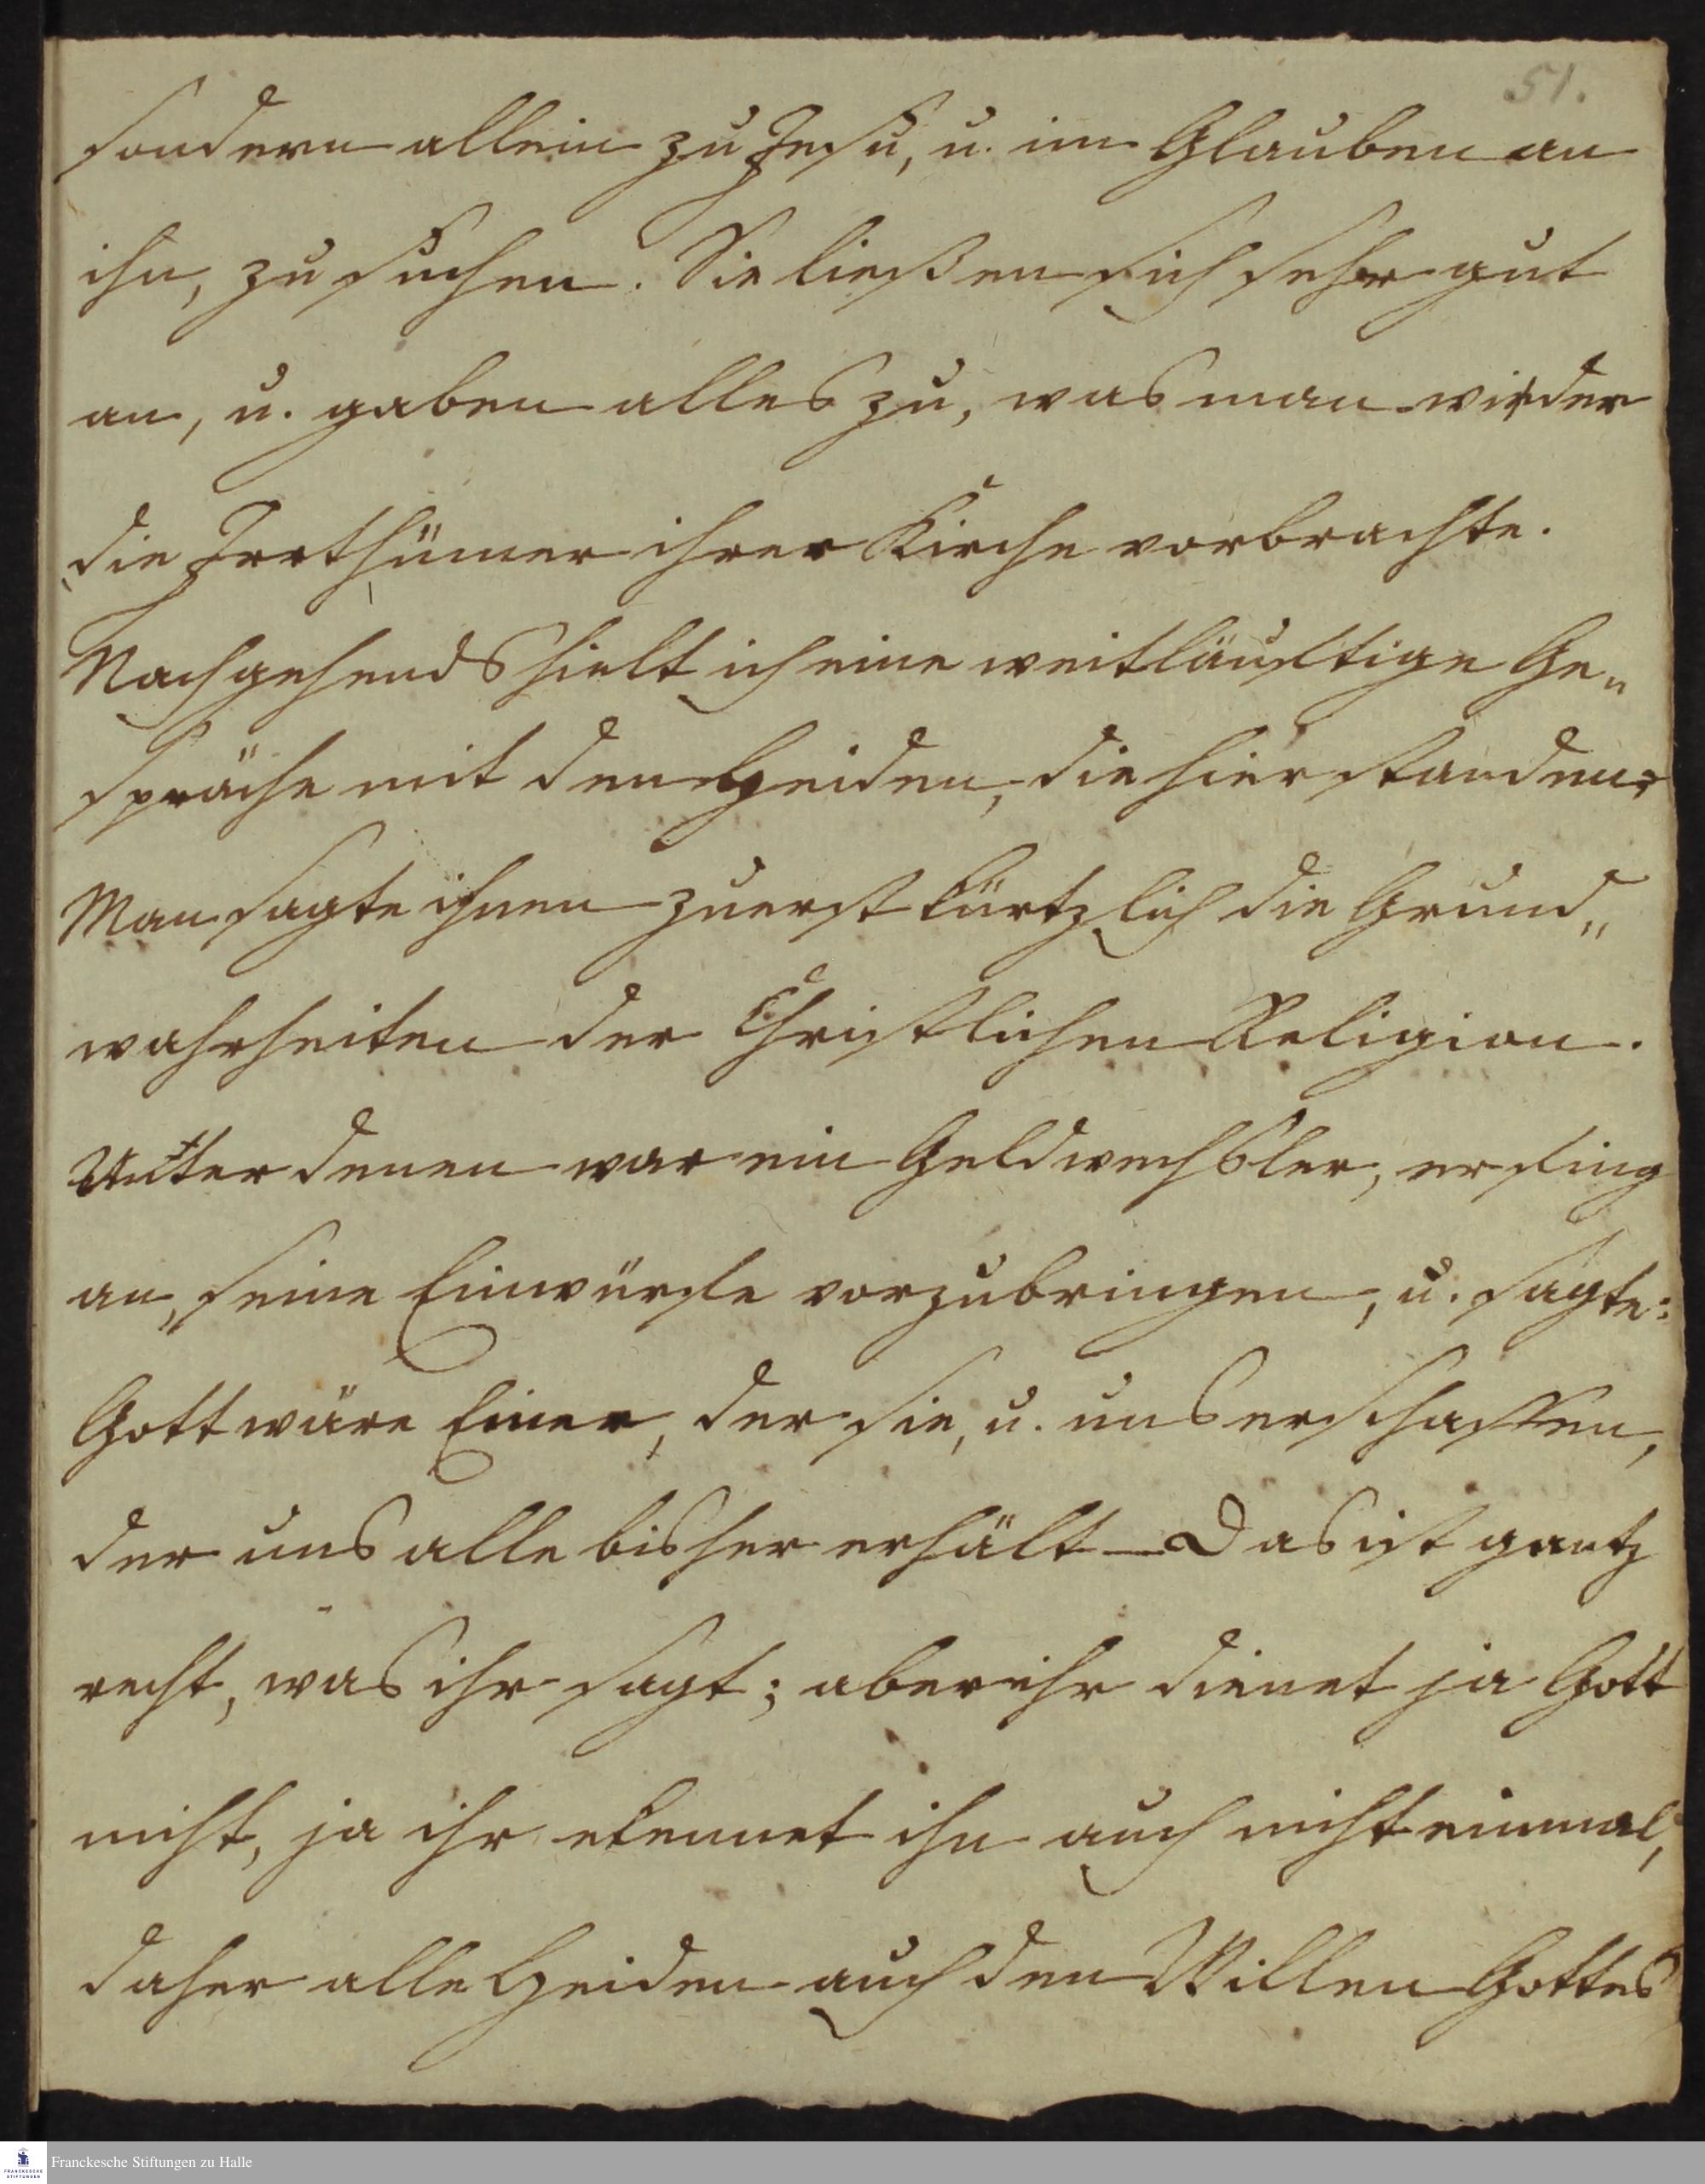 51.
sondern allein zu Jesu, u. im Glauben an
ihn, zu suchen. Sie ließen sich sehr gut
an, u. gaben alles zu, was man wider
die Irrthümer ihrer Kirche vorbrachte.
Nachgehends hielt ich eine weitläuftige Ge„
spräche mit den Heiden, die hier standen.
Man sagte ihnen zuerst kürtzlich die Grund„
wahrheiten der Christlichen Religion.
Unter denen war ein Geldwechsler, er fing
an, seine Einwürfe vorzubringen, u. sagte:
Gott wäre Einer, der sie, u. uns erschaffen,
der uns alle bisher erhält – Das ist gantz
recht, was ihr sagt; aber ihr dienet ja Gott
nicht, ja ihr kennet ihn auch nicht einmal,
daher alle Heiden auch den Willen Gottes
Franckesche Stiftungen zu Halle